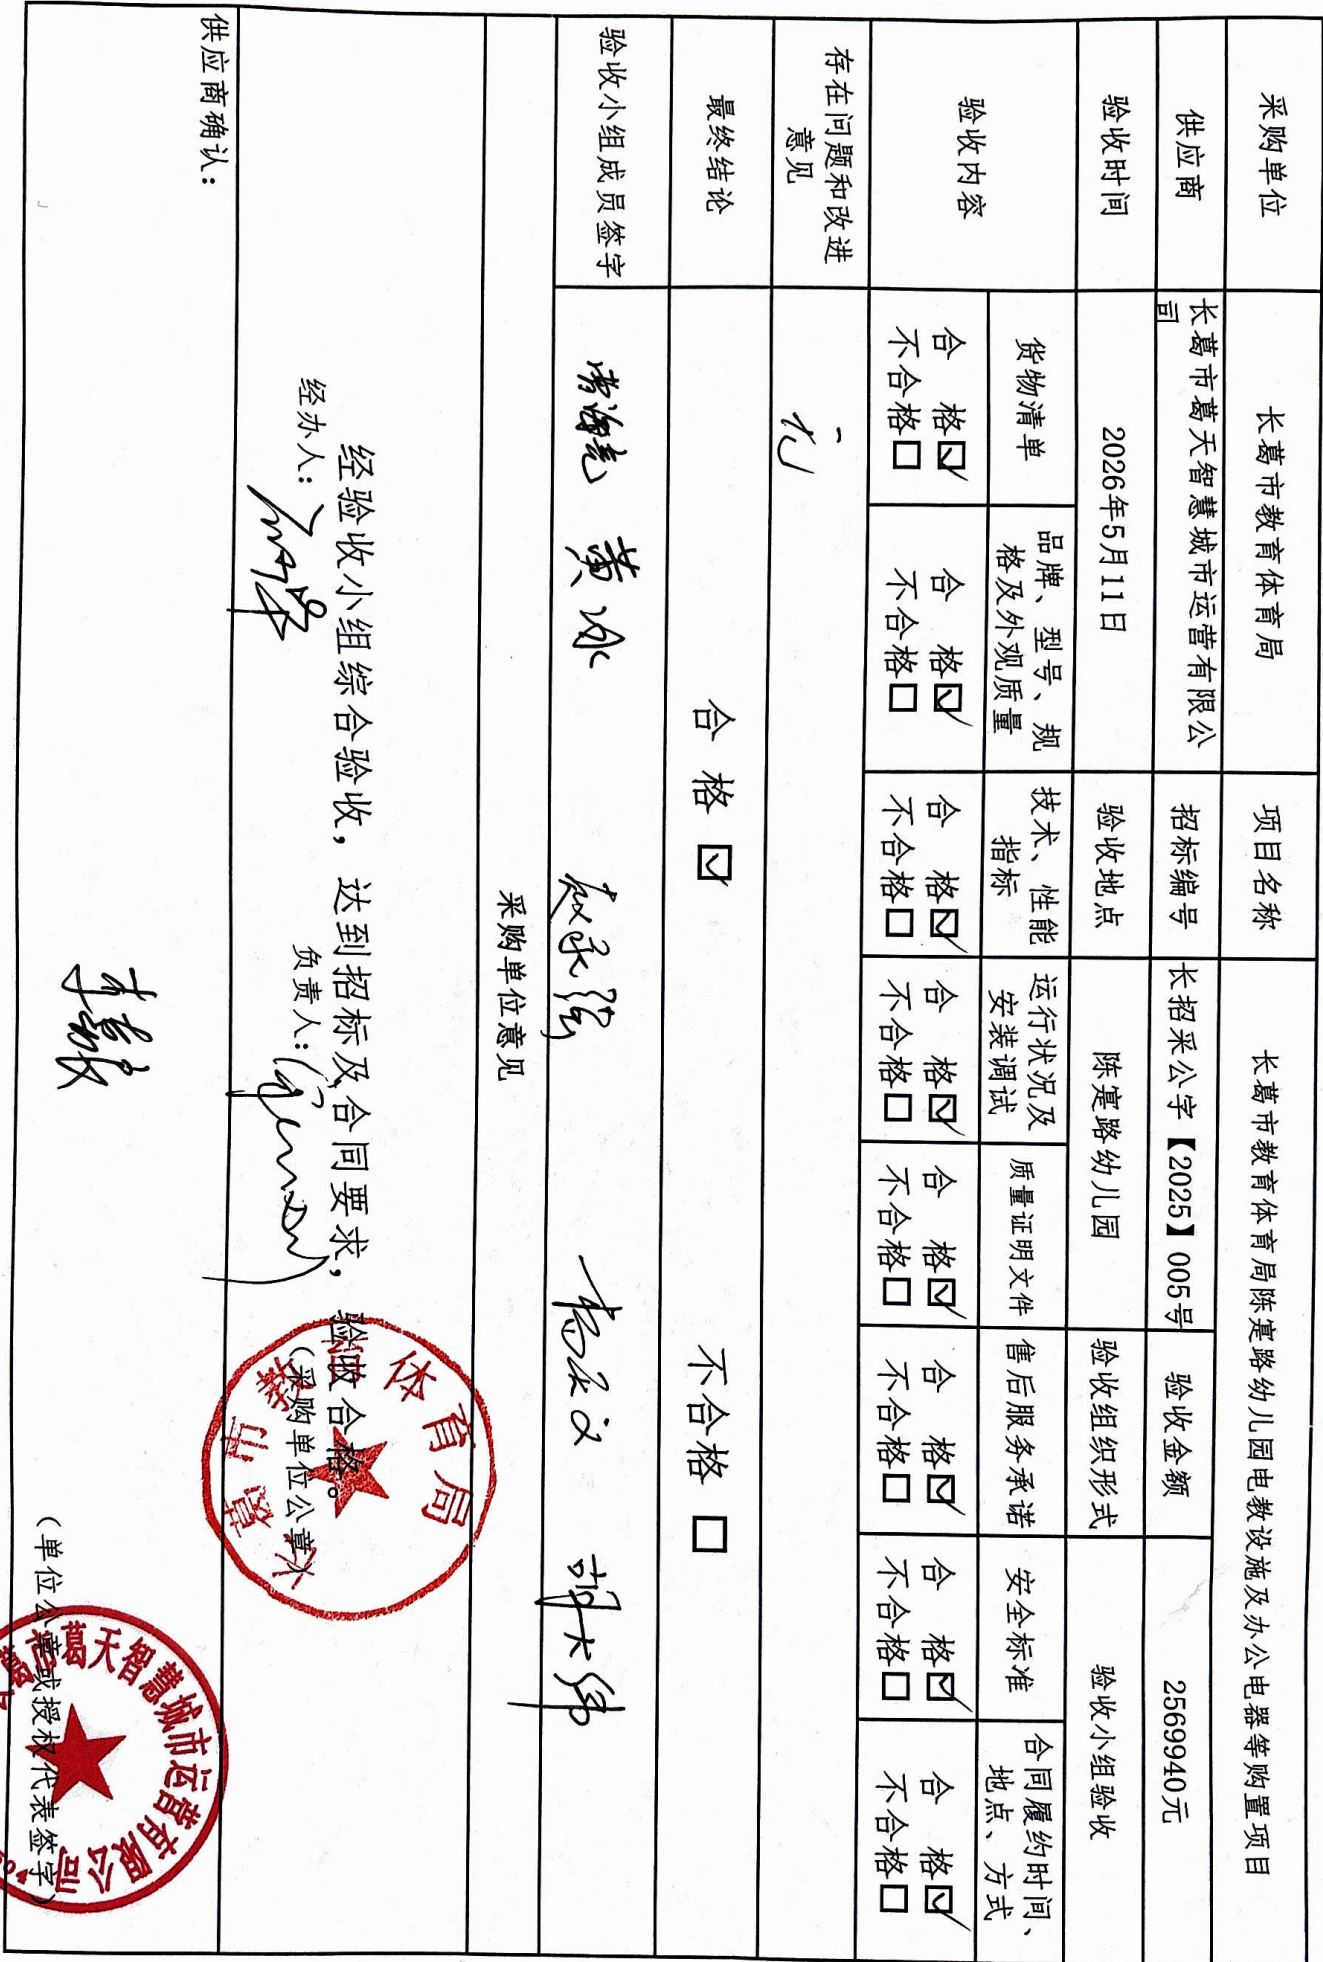 采购单位 长葛市教育体育局 项目名称 长葛市教育体育局陈寔路幼儿园电教设施及办公电器等购置项目
供应商 长葛市葛天智慧城市运营有限公司 招标编号 长招采公字【2025】005号 验收金额 2569940元
验收时间 2026年5月11日 验收地点 陈寔路幼儿园 验收组织形式 验收小组验收
验收内容 货物清单 品牌、型号、规格及外观质量 技术、性能指标 运行状况及安装调试 质量证明文件 售后服务承诺 安全标准 合同履约时间、地点、方式
合 格☑ 合 格☑ 合 格☑ 合 格☑ 合 格☑ 合 格☑ 合 格☑ 合 格☑
不合格□ 不合格□ 不合格□ 不合格□ 不合格□ 不合格□ 不合格□ 不合格□
存在问题和改进意见 无
最终结论 合 格 ☑ 不合格 □
验收小组成员签字 黄冰
采购单位意见
经验收小组综合验收，达到招标及合同要求，验收合格。
经办人： 负责人： （采购单位公章）
长葛市教育体育局
供应商确认：
（单位公章或授权代表签字）
长葛市葛天智慧城市运营有限公司